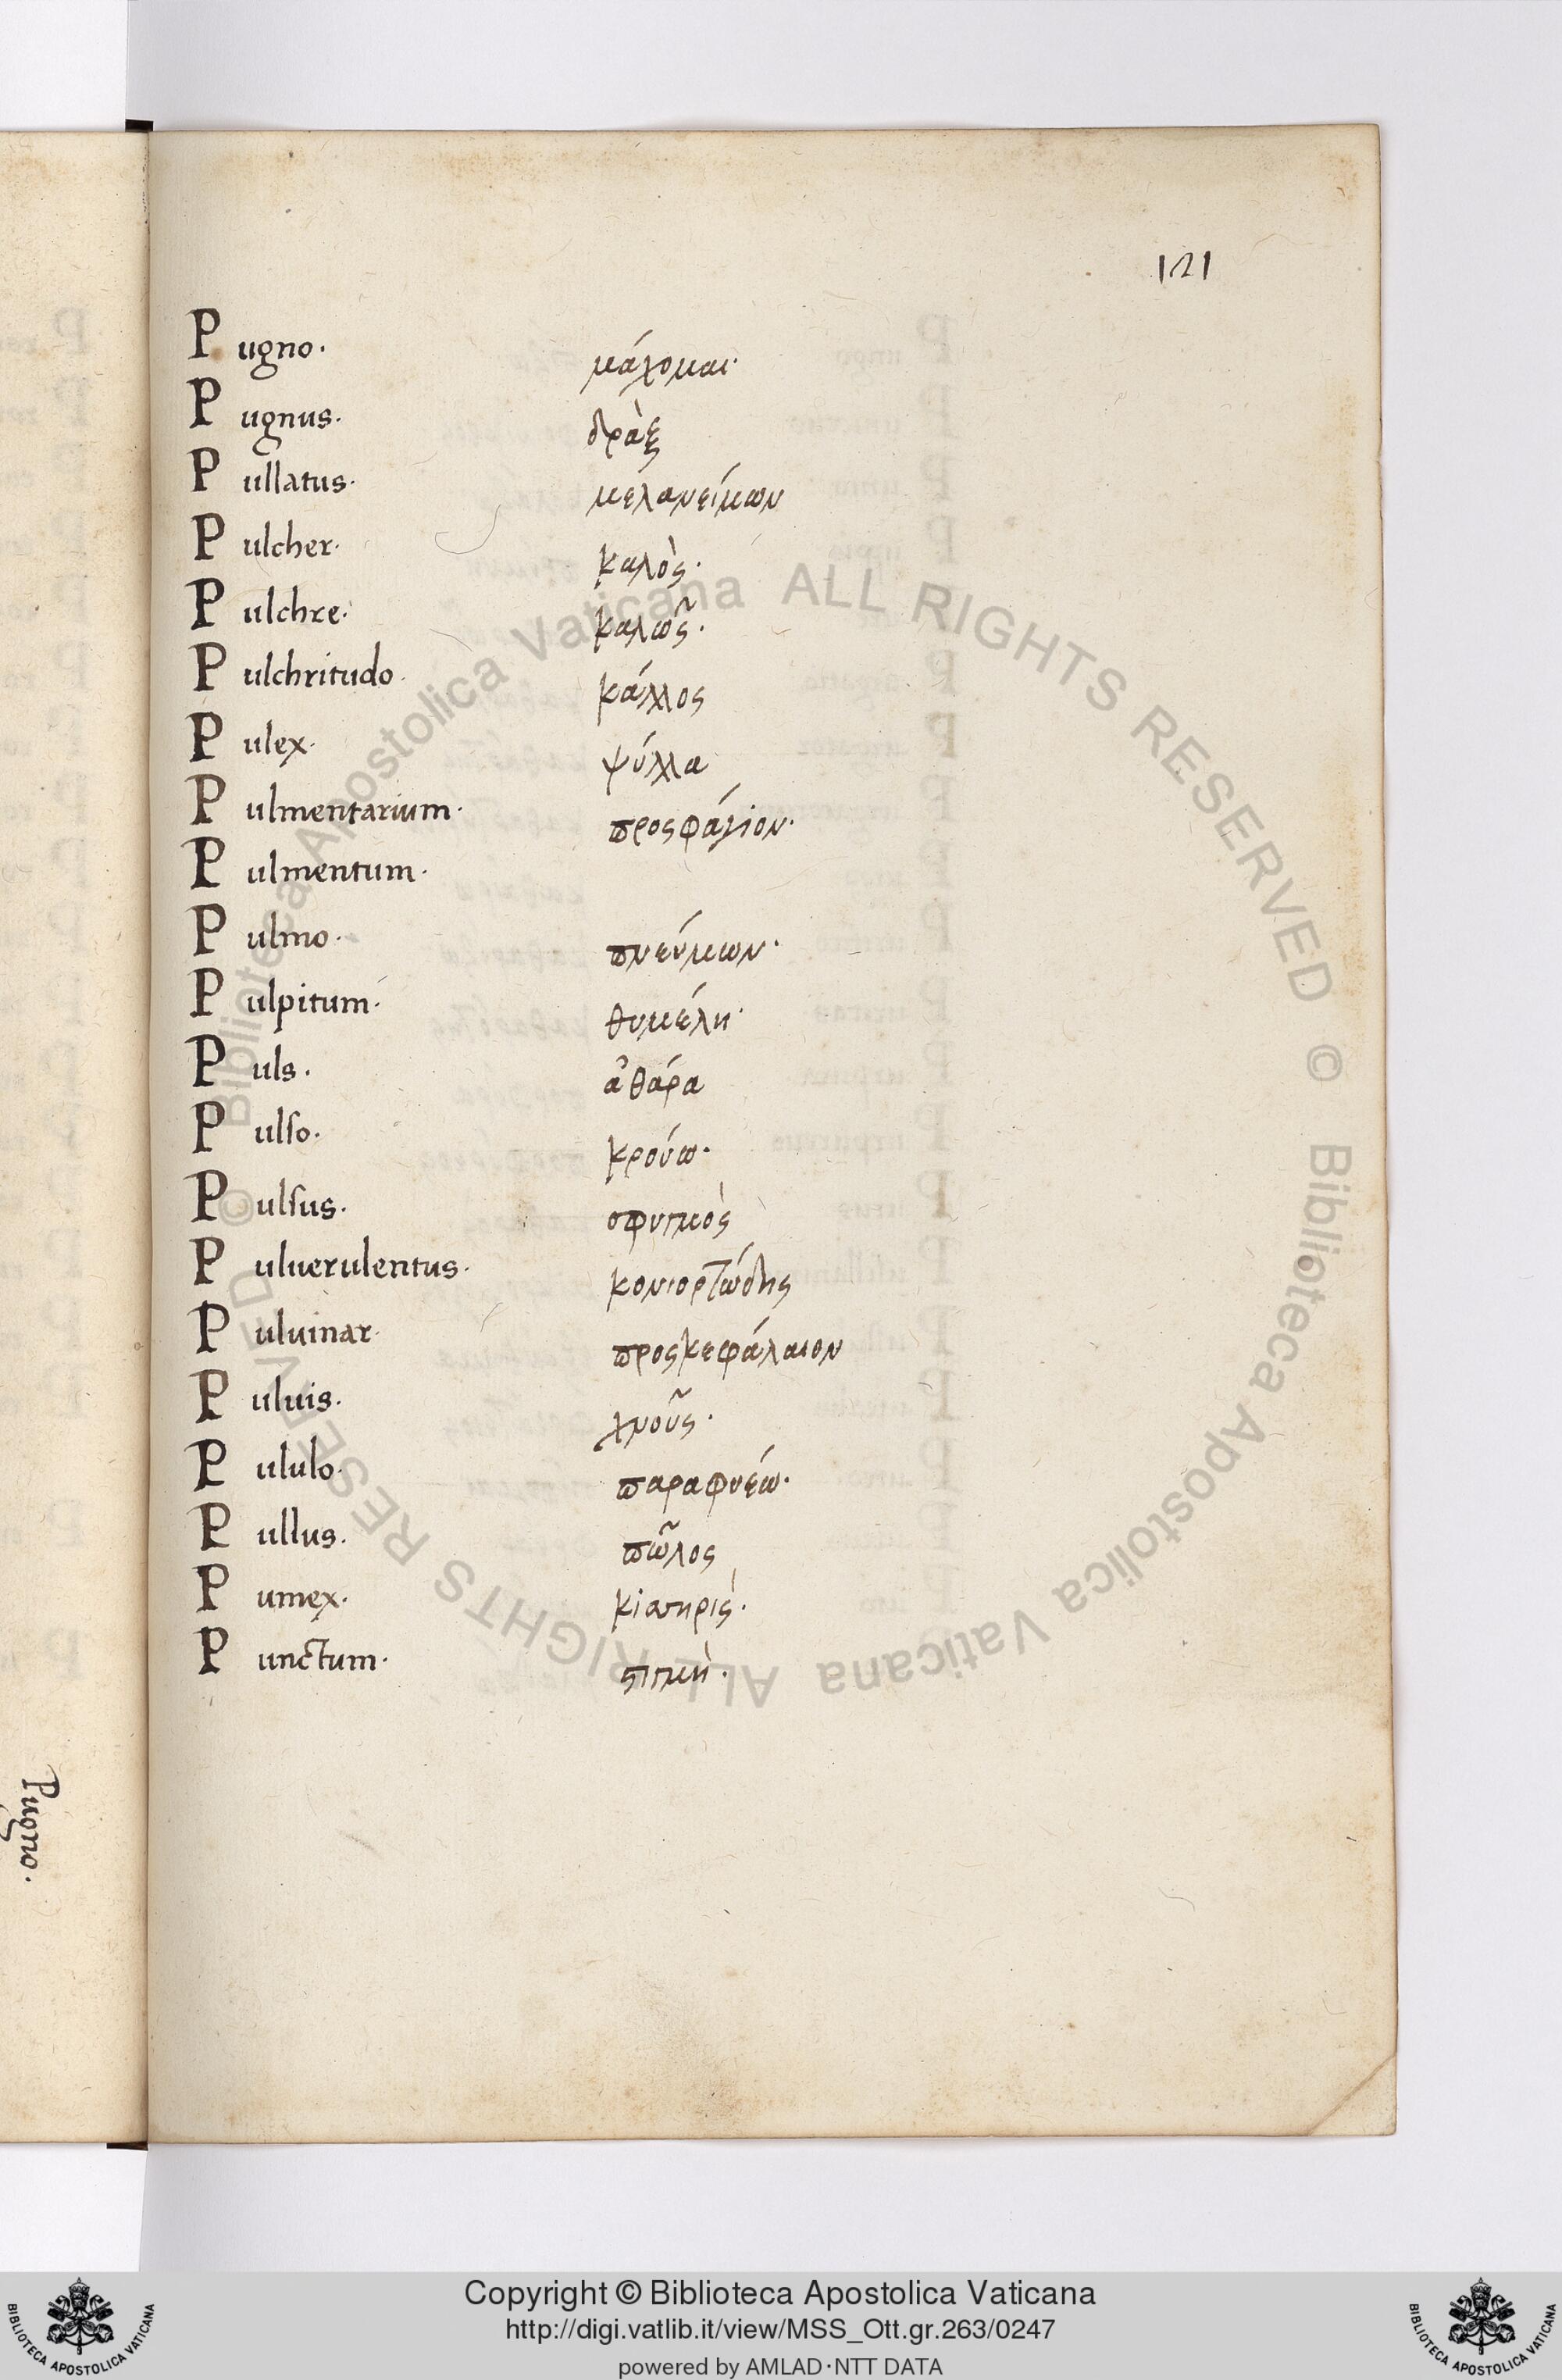 121
Pugno· μάχομαι·
Pugnus· δρὰξ
Pullatus· μελανείμων
Pulcher· καλὸς·
Pulchre· καλῶς·
Pulchritudo· κάλλος
Pulex· ψύλλα
Pulmentarium· προσφάγιον·
Pulmentum·
Pulmo· πνεύμων·
Pulpitum· θυμέλη·
Puls· ἀθάρα
Pulso· κρούω·
Pulsus· σφυγμὸς
Puluerulentus· κονιορτώδης
Puluinar· προσκεφάλαιον
Puluis· χνοῦς·
Pululo· παραφυέω·
Pullus· πῶλος
Pumex· κίσηρις·
Punctum· στιγμὴ·
Pugno·
Biblioteca Apostolica Vaticana ALL RIGHTS RESERVED ©
Biblioteca Apostolica Vaticana ALL RIGHTS RESERVED ©
Copyright © Biblioteca Apostolica Vaticana
http://digi.vatlib.it/view/MSS_Ott.gr.263/0247
powered by AMLAD·NTT DATA
BIBLIOTECA APOSTOLICA VATICANA
BIBLIOTECA APOSTOLICA VATICANA